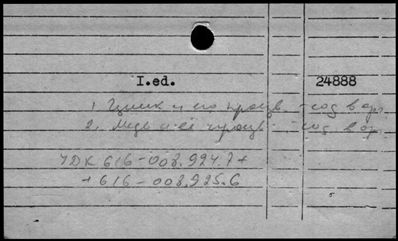 I.ed. 24888
1. Цинк и его произв. - сод. в орг.
2. Медь и её произв. - сод. в ор.
УДК 616-008.924.7+
+616-008.925.6